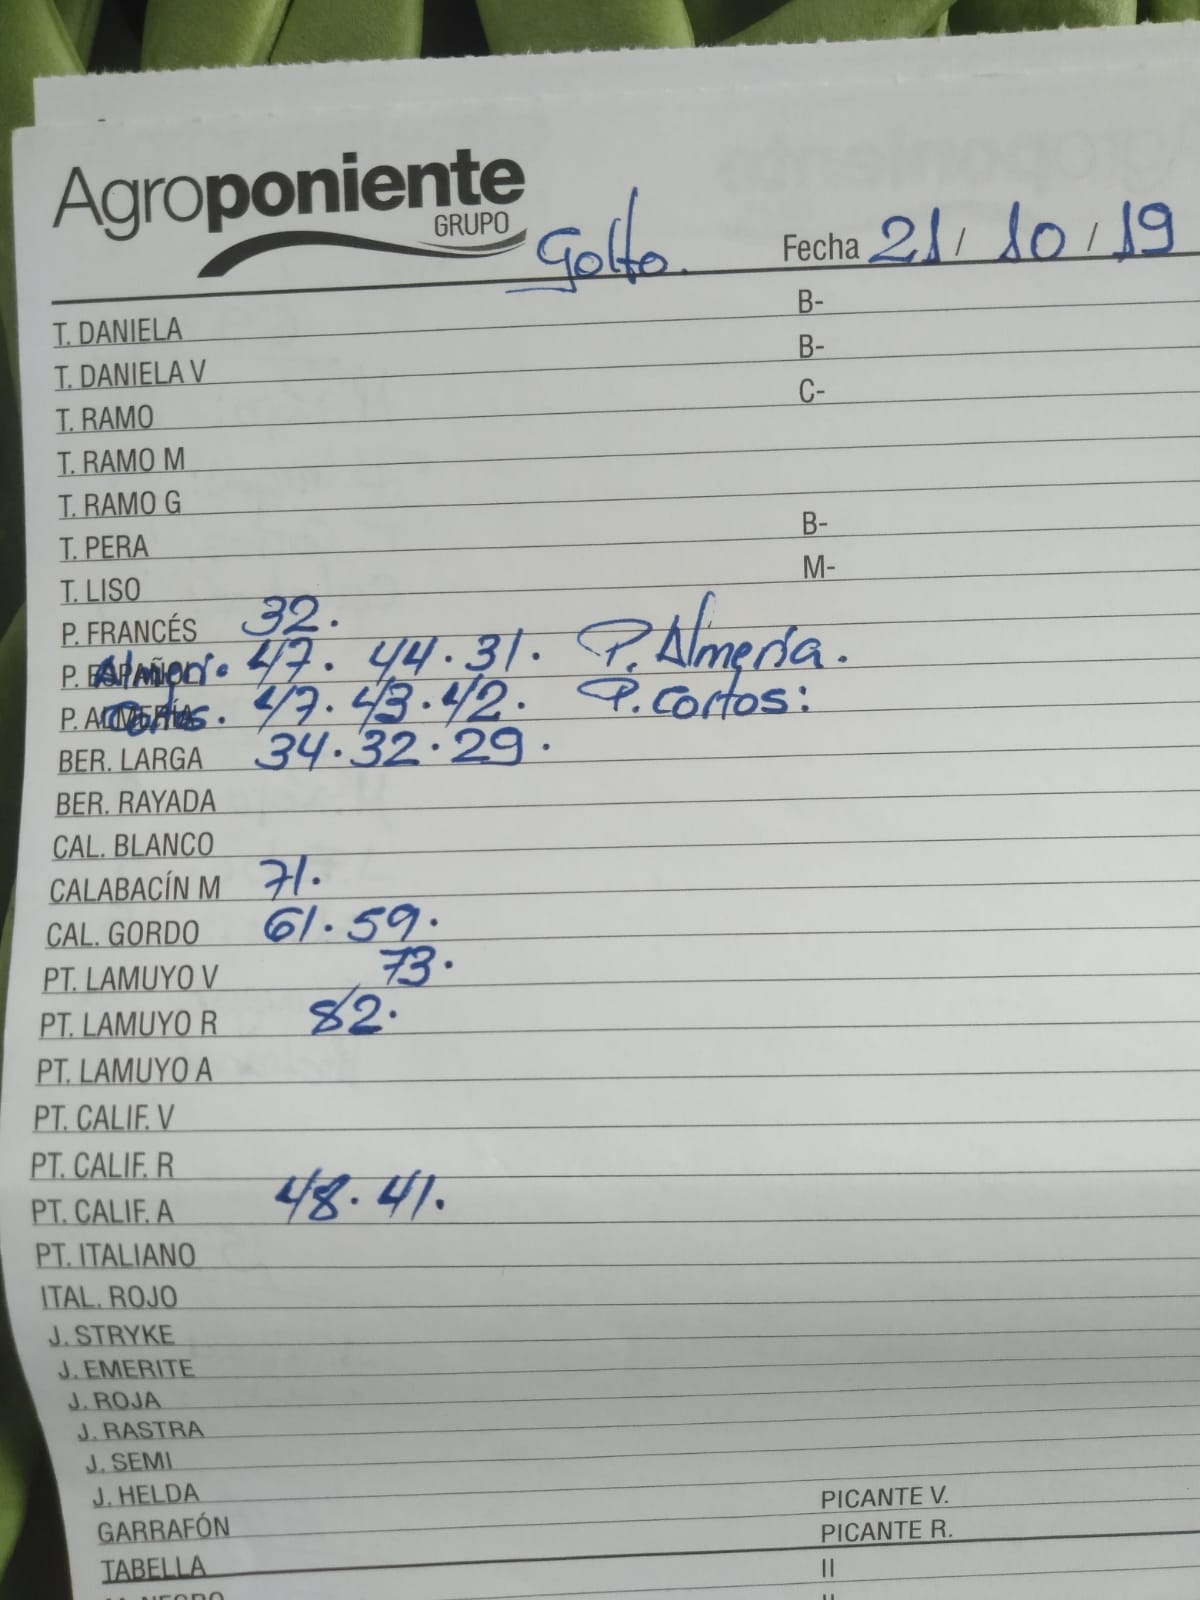 Agroponiente
GRUPO
Golfo.
Fecha 21 / 10 / 19
T. DANIELA B-
T. DANIELA V B-
T. RAMO C-
T. RAMO M
T. RAMO G
T. PERA B-
T. LISO M-
P. FRANCÉS 32.
P. ESPAÑOL Almeri. 47. 44. 31. P. Almería.
P. ALMERÍA Cortos. 47. 43. 42. P. Cortos:
BER. LARGA 34. 32. 29.
BER. RAYADA
CAL. BLANCO
CALABACÍN M 71.
CAL. GORDO 61. 59.
PT. LAMUYO V 73.
PT. LAMUYO R 82.
PT. LAMUYO A
PT. CALIF. V
PT. CALIF. R
PT. CALIF. A 48. 41.
PT. ITALIANO
ITAL. ROJO
J. STRYKE
J. EMERITE
J. ROJA
J. RASTRA
J. SEMI
J. HELDA
GARRAFÓN PICANTE V.
TABELLA PICANTE R.
II